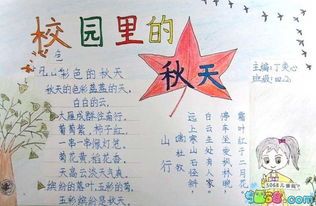 校园里的
秋天
主编:丁奕心
班级:四.2
色彩色的秋天
秋天的色彩蓝蓝的天,
白白的云,
大雁成群往南行,
葡萄紫,柿子红,
一串一串像灯笼,
菊花黄,稻花香,
天高云淡天气爽,
缤纷的落叶,五彩的菊,
五彩缤纷是秋天。
山行
唐 杜牧
远上寒山石径斜
白云生处有人家
停车坐爱枫林晚
霜叶红于二月花
5068儿童网
5068.com